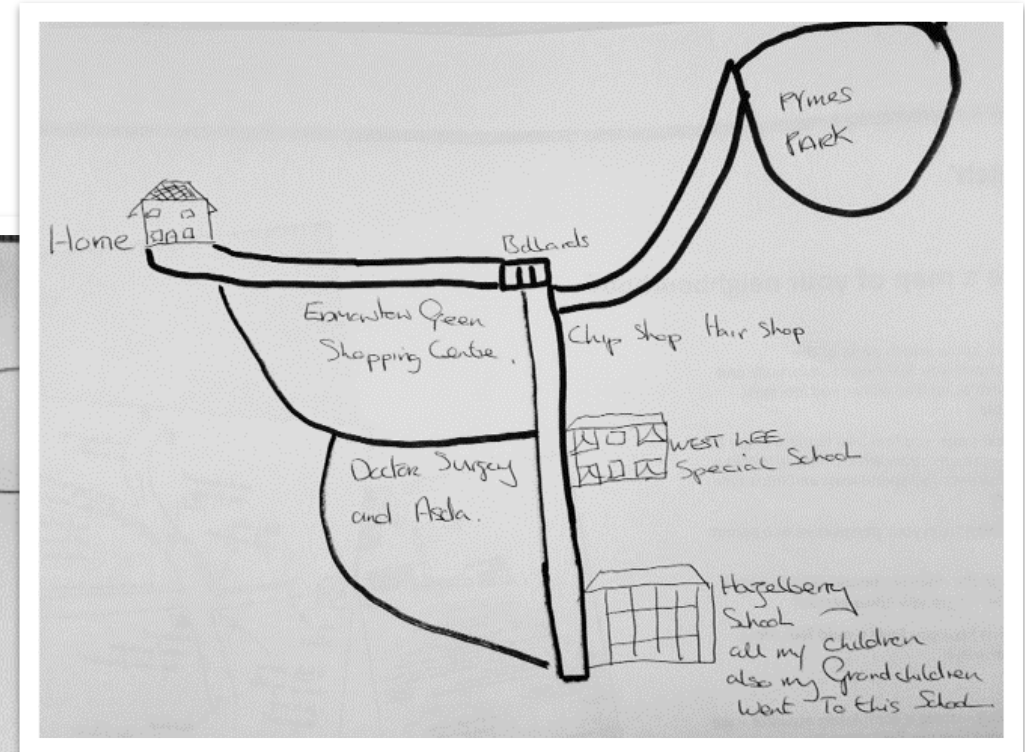 PYMES
PARK
Home
Bollards
Edmonton Green
Shopping Centre.
Chip Shop Hair Shop
WEST LEE
Special School
Doctor Surgery
and Asda.
Hazelberry
School
all my children
also my Grandchildren
Went To this School